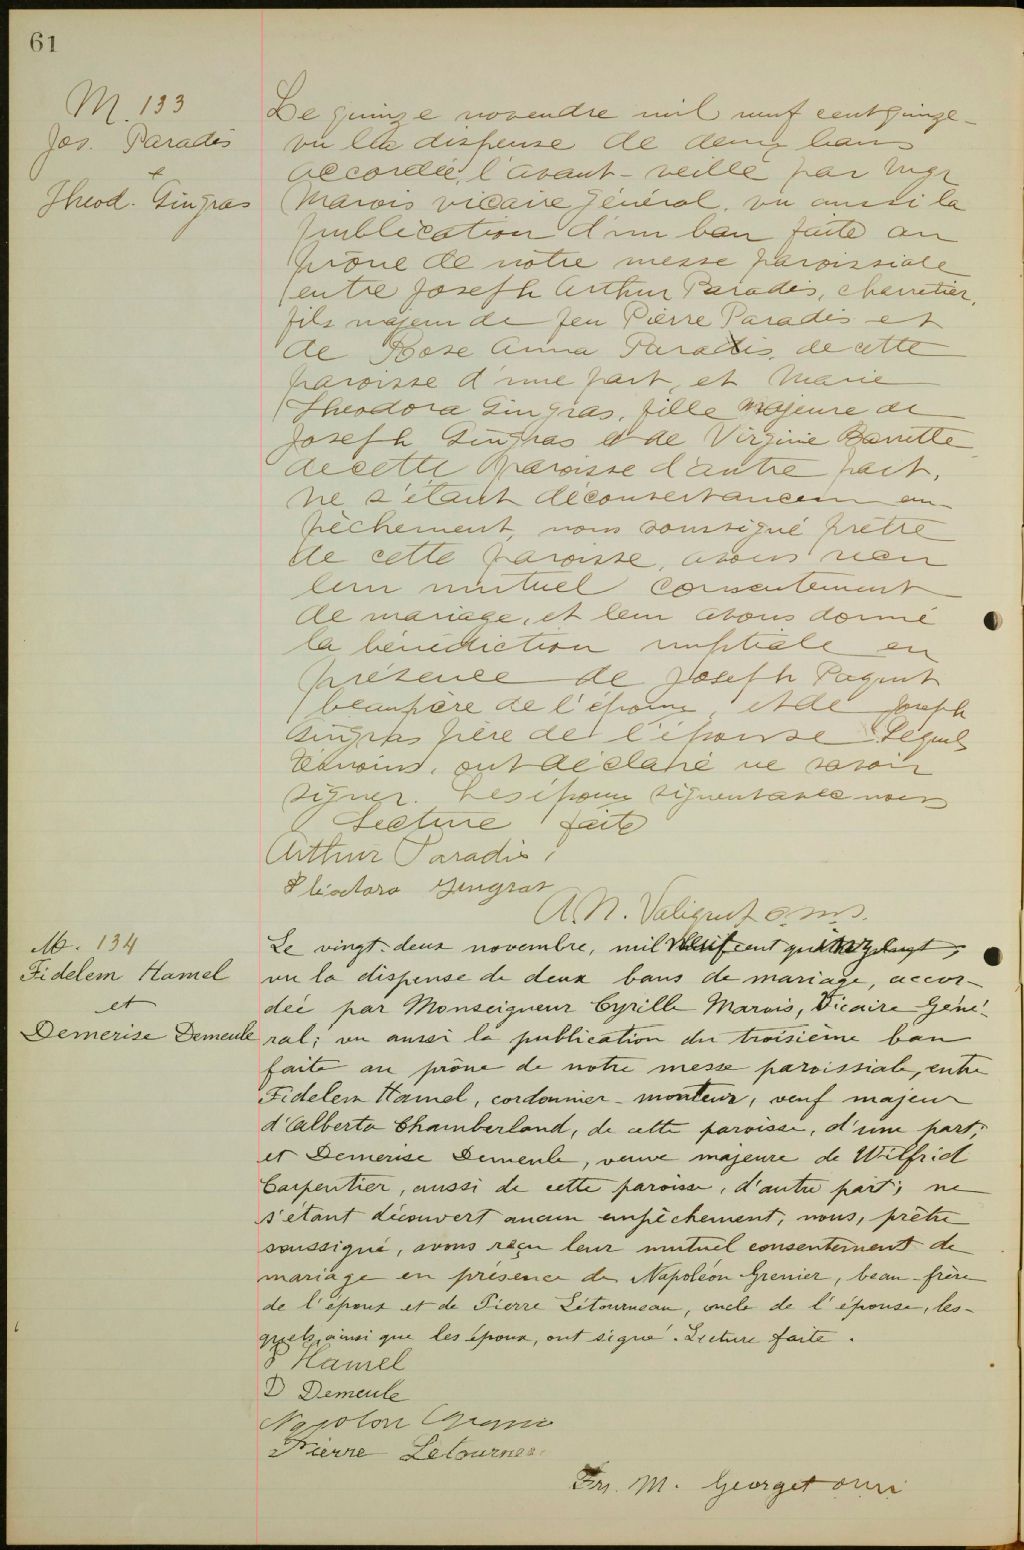 61
M. 133
Jos. Paradis
+
Theod. Gingras
Le quinze novembre mil neuf cent quinze -
vu la dispense de deux bans
accordée, l'avant-veille par Mgr
Marois vicaire général, vu aussi la
publication d'un ban faite au
prône de notre messe paroissiale
entre Joseph Arthur Paradis, charretier,
fils majeur de feu Pierre Paradis et
de Rose Anna Paradis, de cette
paroisse d'une part, et Marie
Theodora Gingras, fille majeure de
Joseph Gingras et de Virginie Barrette
de cette paroisse d'autre part,
ne s'étant découvert aucun em-
pêchement, nous soussigné prêtre
de cette paroisse, avons reçu
leur mutuel consentement
de mariage, et leur avons donné
la bénédiction nuptiale en
présence de Joseph Paquet
beaupère de l'époux, et de Joseph
Gingras père de l'épouse. Lesquels
témoins, ont déclaré ne savoir
signer. Les époux signent avec nous
Lecture faite
Arthur Paradis,
Théodora Gingras
A. N. Valiquet o.m.i.
M. 134
Fidelem Hamel
et
Demerise Demeule
Le vingt-deux novembre, mil neuf cent quinze,
vu la dispense de deux bans de mariage, accor-
dée par Monseigneur Cyrille Marois, Vicaire Géné-
ral; vu aussi la publication du troisième ban
faite au prône de notre messe paroissiale, entre
Fidelem Hamel, cordonnier-monteur, veuf majeur
d'Alberta Chamberland, de cette paroisse, d'une part;
et Demerise Demeule, veuve majeure de Wilfrid
Carpentier, aussi de cette paroisse, d'autre part; ne
s'étant découvert aucun empêchement, nous, prêtre
soussigné, avons reçu leur mutuel consentement de
mariage en présence de Napoléon Grenier, beau-frère
de l'époux et de Pierre Létourneau, oncle de l'épouse, les-
quels, ainsi que les époux, ont signé. Lecture faite.
F Hamel
D Demeule
Napolon
Pierre Letourneau
Frs. M. Georget omi